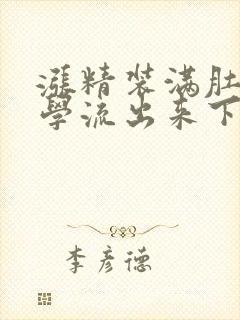 漲精装满肚
學流出来下
李彦德